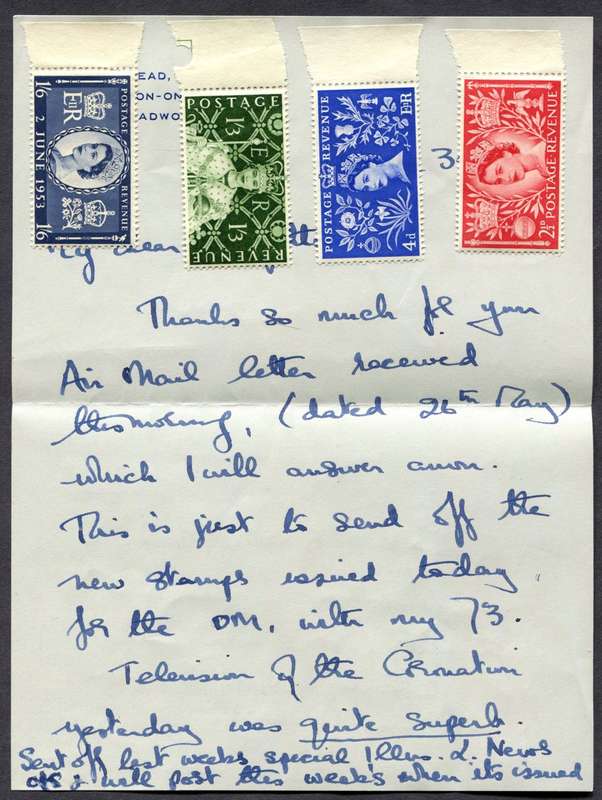 EAD,
ON-ON
ADWO
1/6 POSTAGE REVENUE 1/6
E II R
2 JUNE 1953
POSTAGE
1/3 E
R 1/3
REVENUE
POSTAGE REVENUE
E II R
4d
2½D POSTAGE REVENUE
3
My dear
Thanks so much for your
Air Mail letter received
this morning, (dated 26th May)
which I will answer anon.
This is just to send off the
new stamps issued today
for the DM, with my 73.
Television of the Coronation
yesterday was quite superb.
Sent off last weeks special Illus. L. News
& will post this week's when its issued